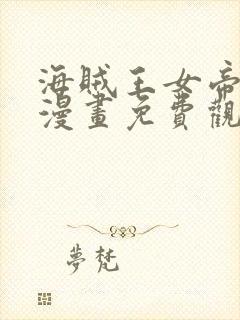 海賊王女帝
漫畫免費觀
夢梵